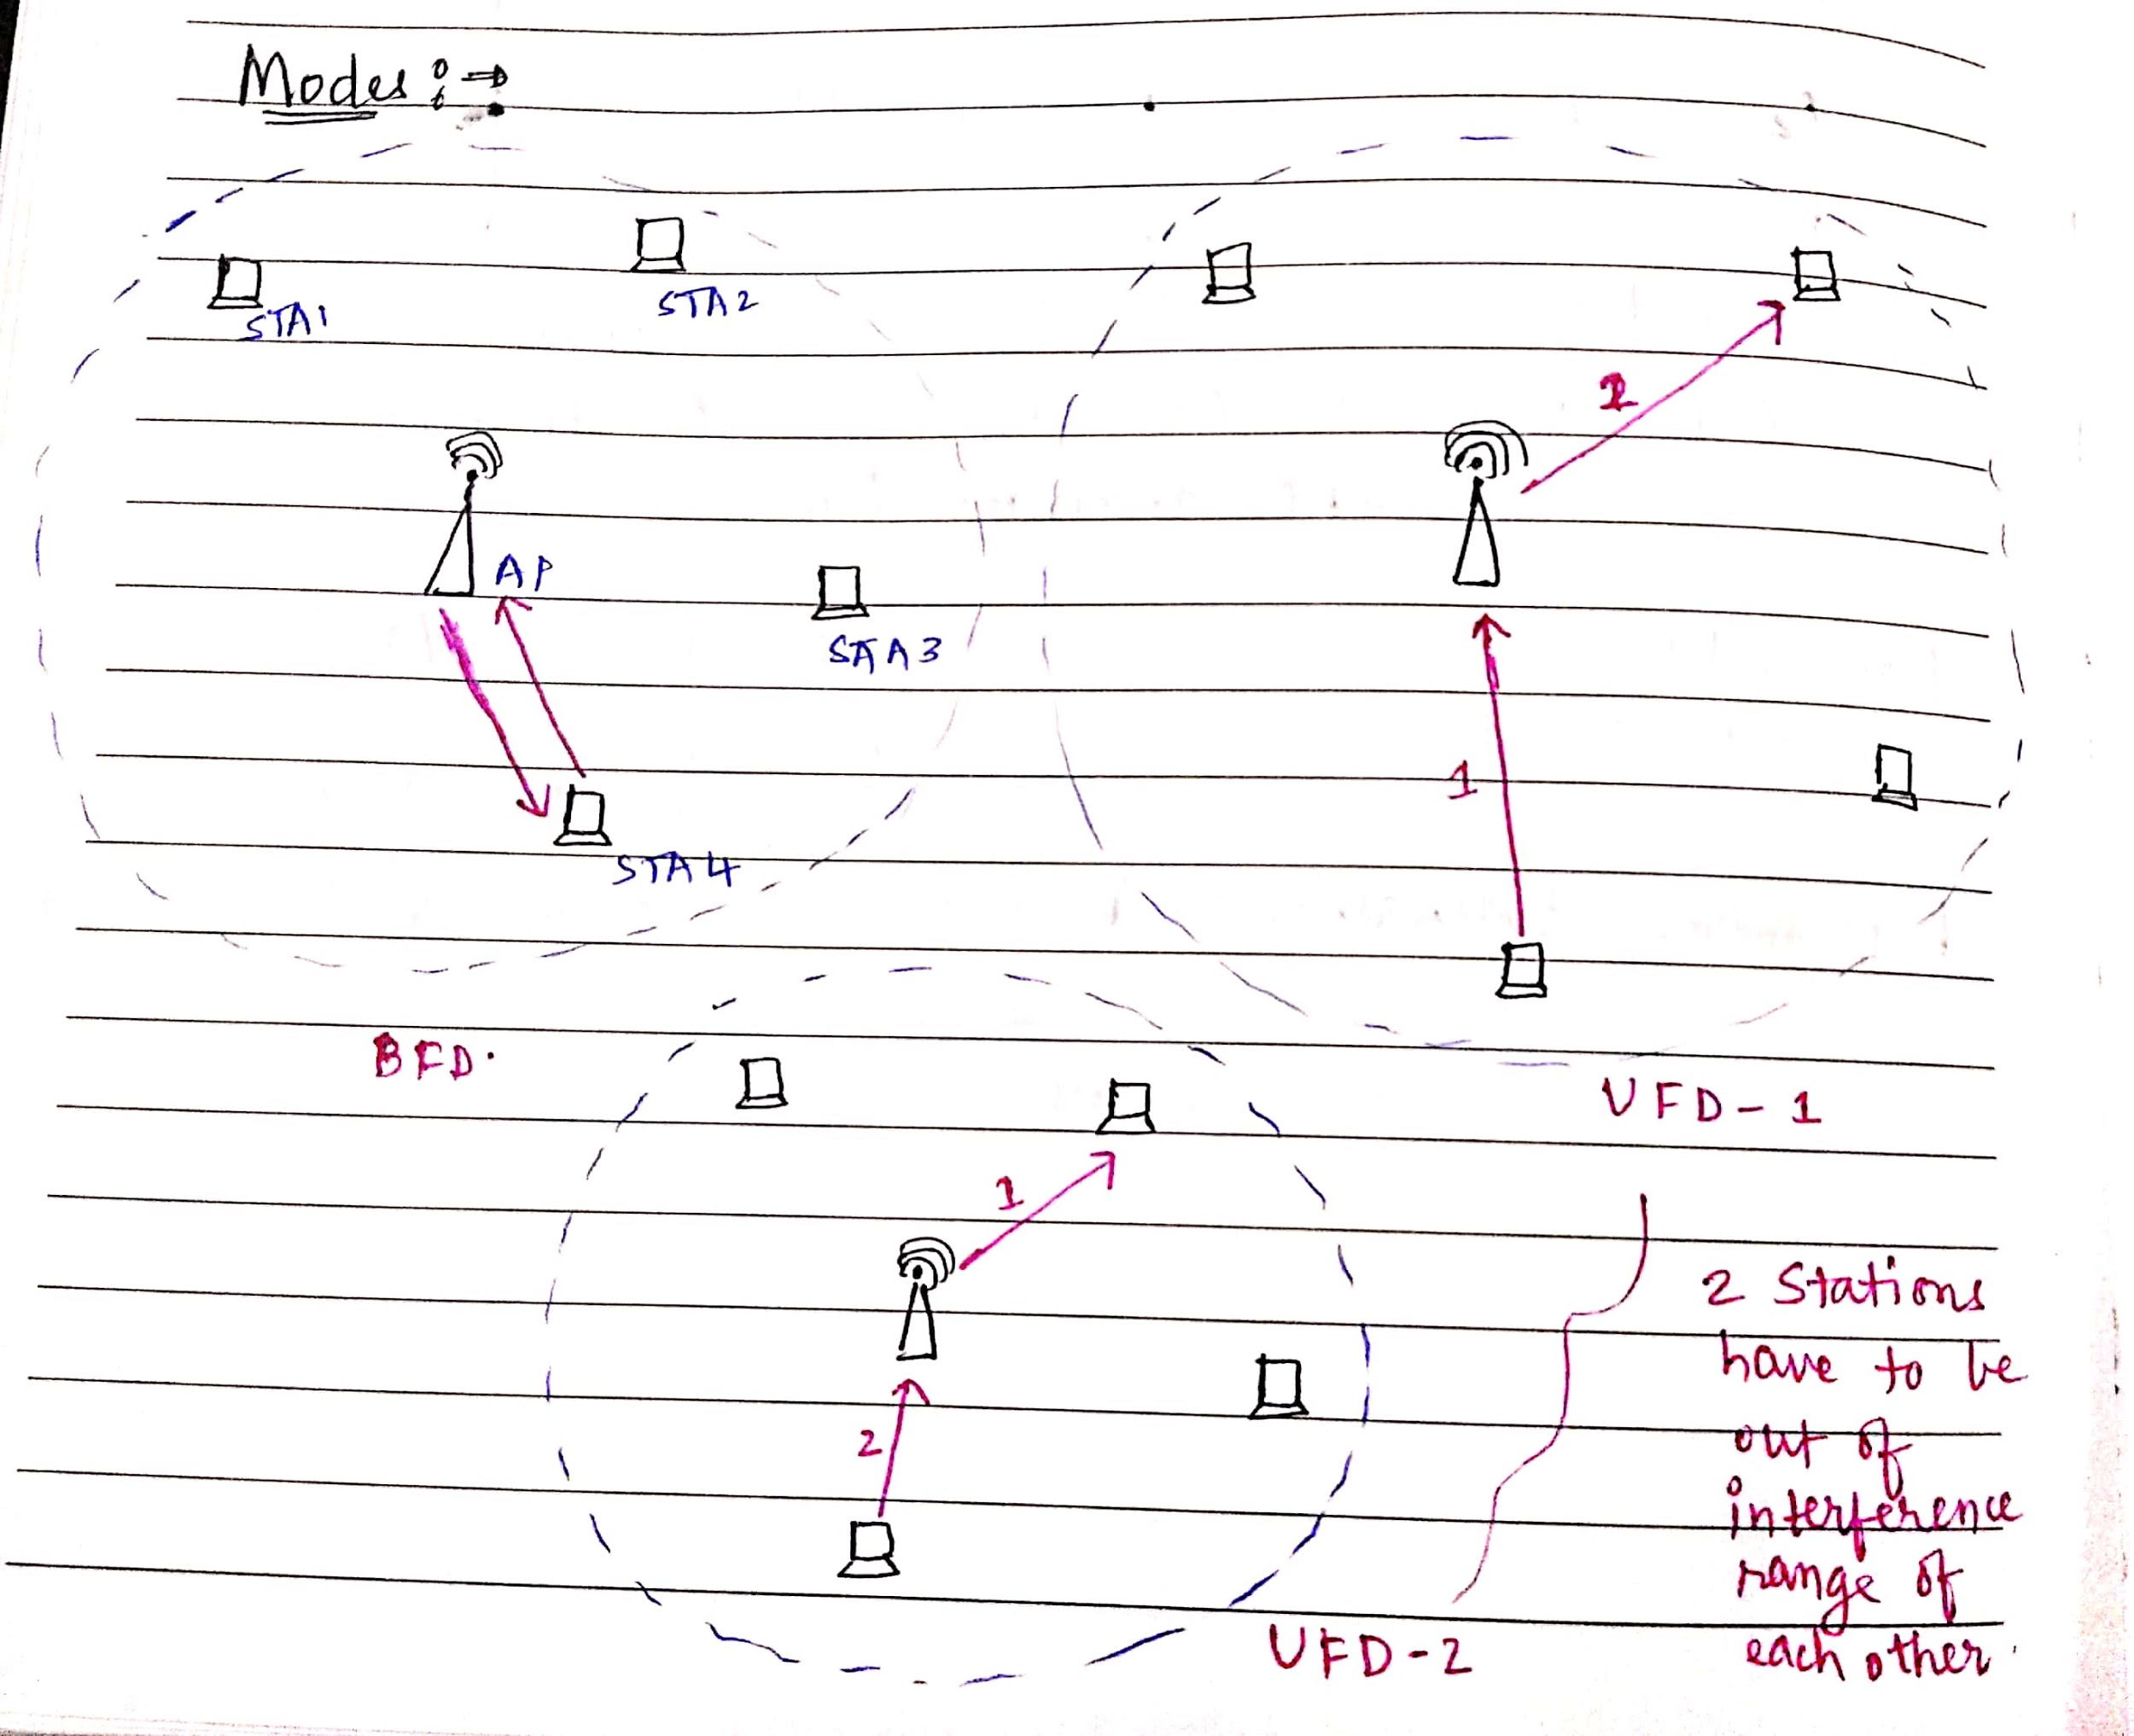 Modes :→
STA1
STA2
AP
STA3
STA4
2
1
BFD.
UFD-1
1
2
UFD-2
2 Stations
have to be
out of
interference
range of
each other.